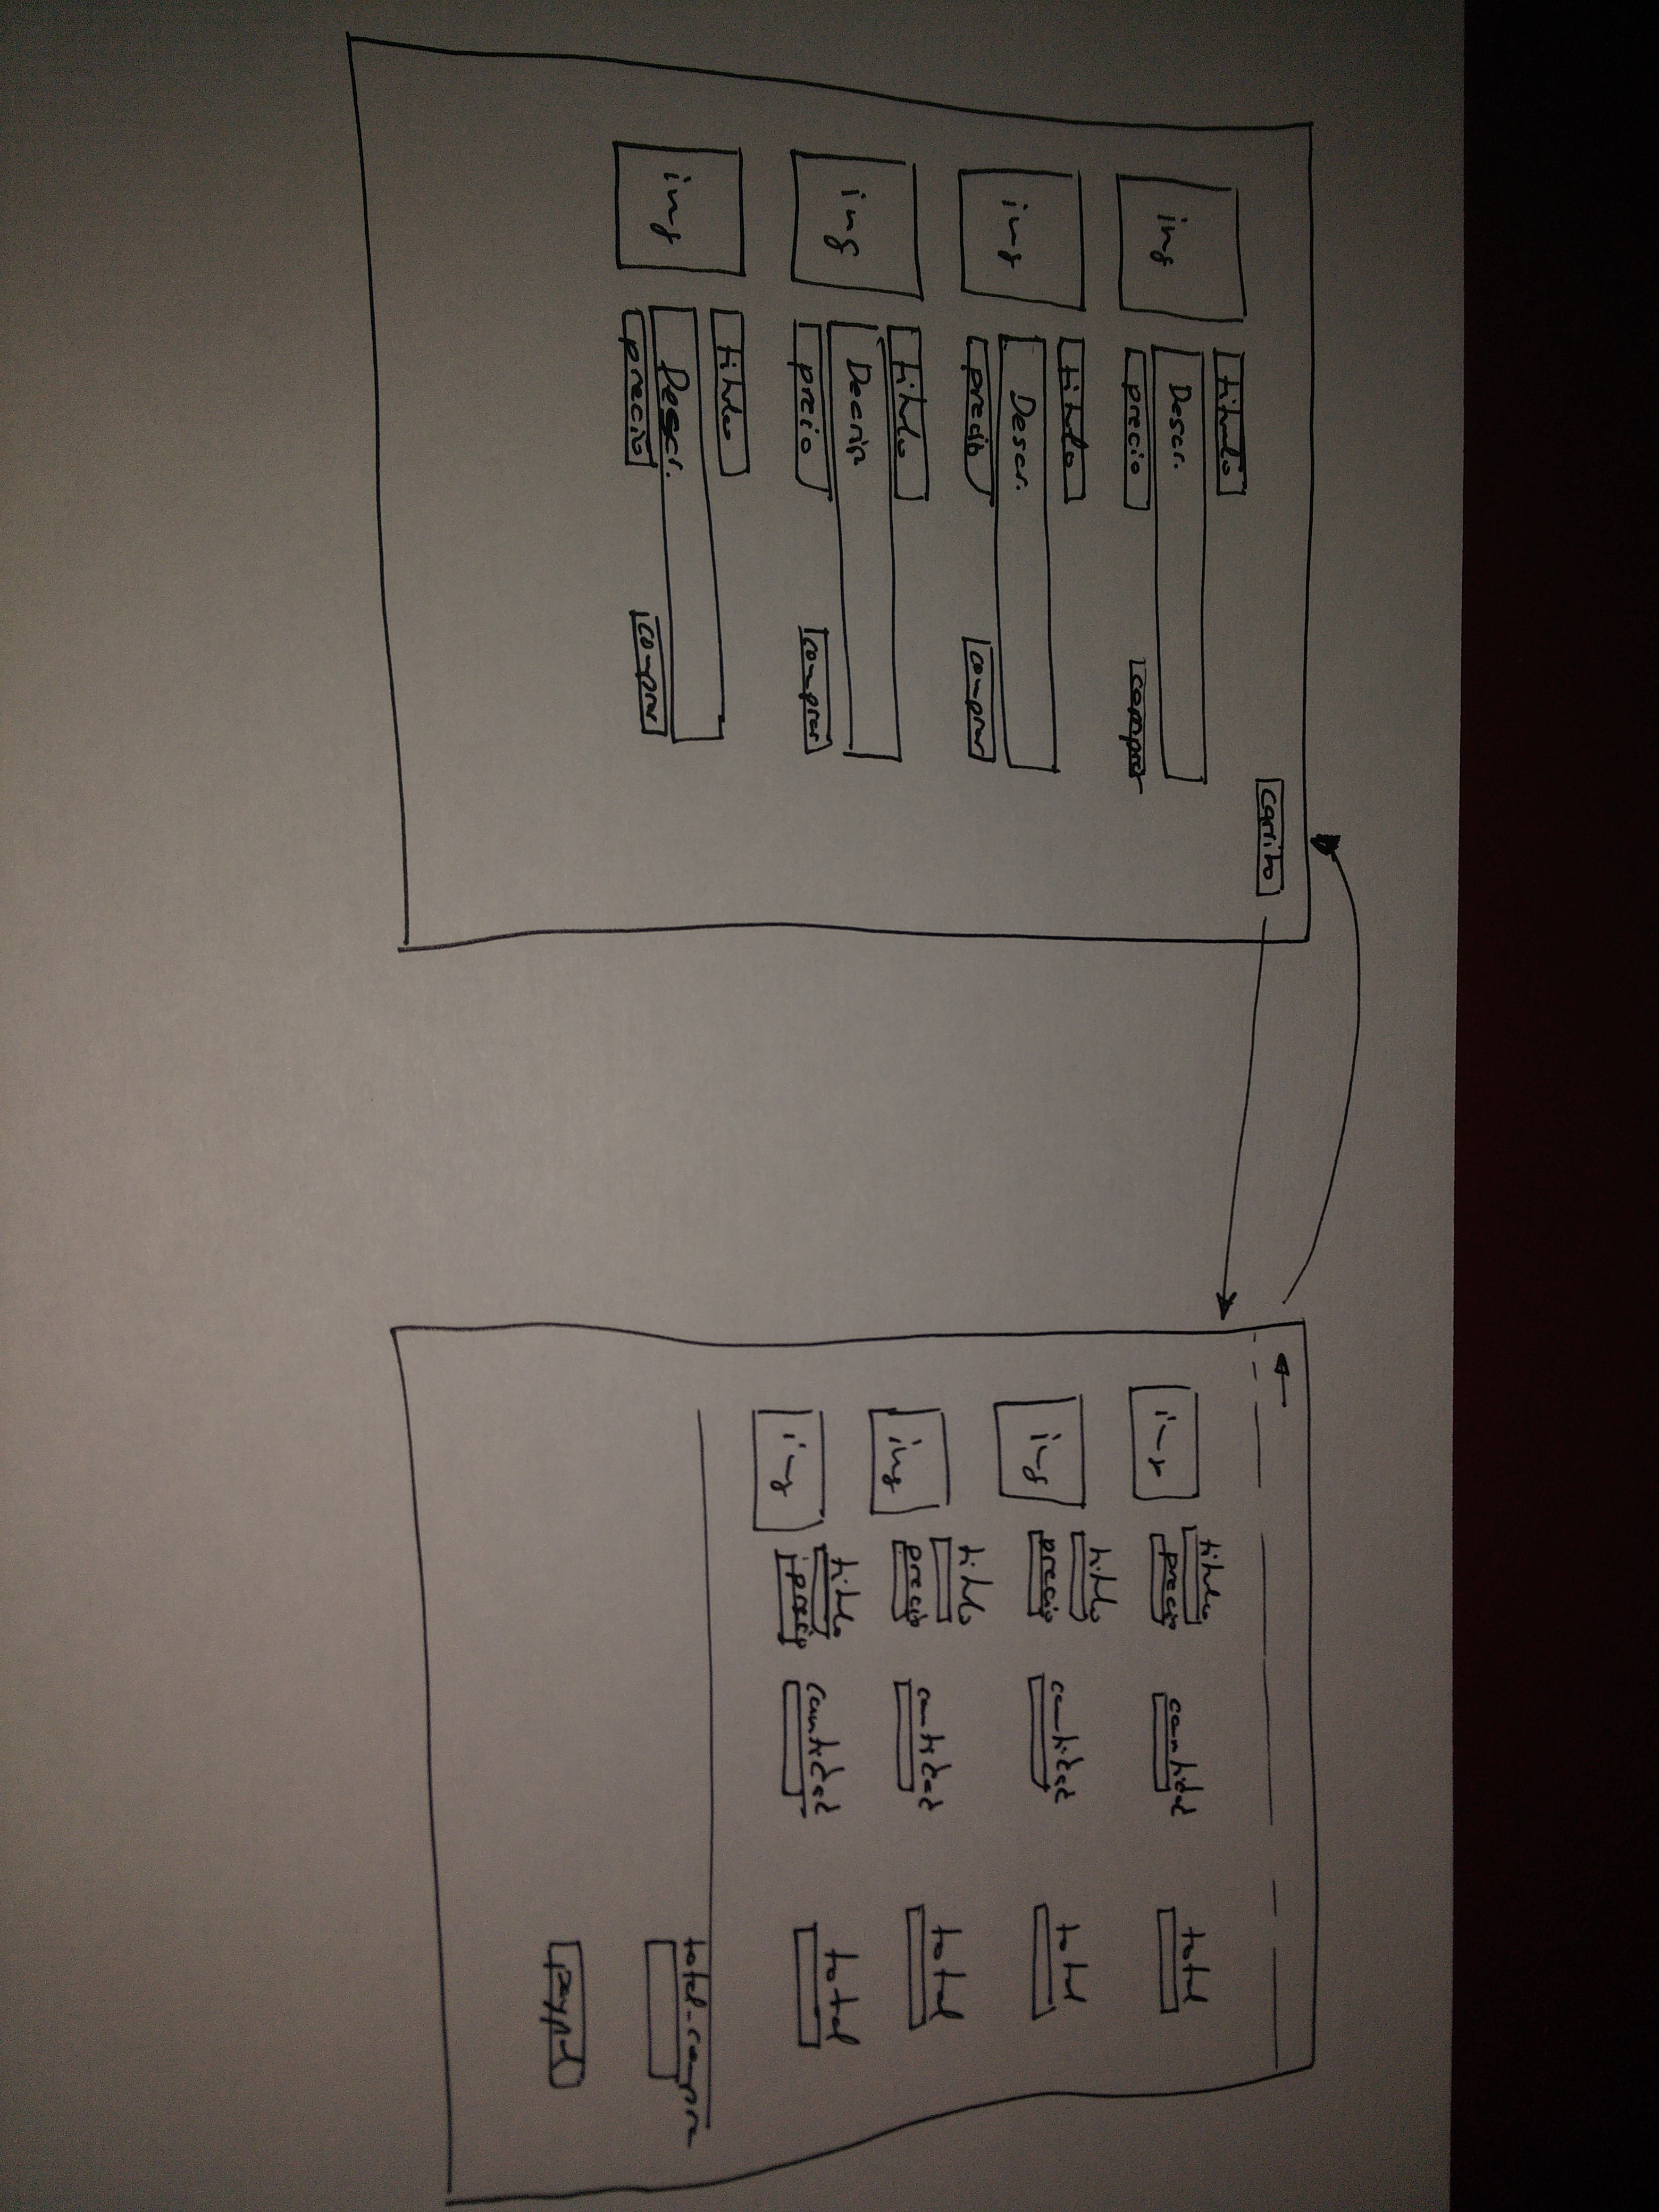 carrito
img
titulo
Descr.
precio
comprar
img
titulo
Descr.
precio
comprar
img
titulo
Decrip
precio
comprar
img
titulo
Descr.
precio
comprar
img
titulo
precio
cantidad
total
img
titulo
precio
cantidad
total
img
titulo
precio
cantidad
total
img
titulo
precio
cantidad
total
total-compra
paypal